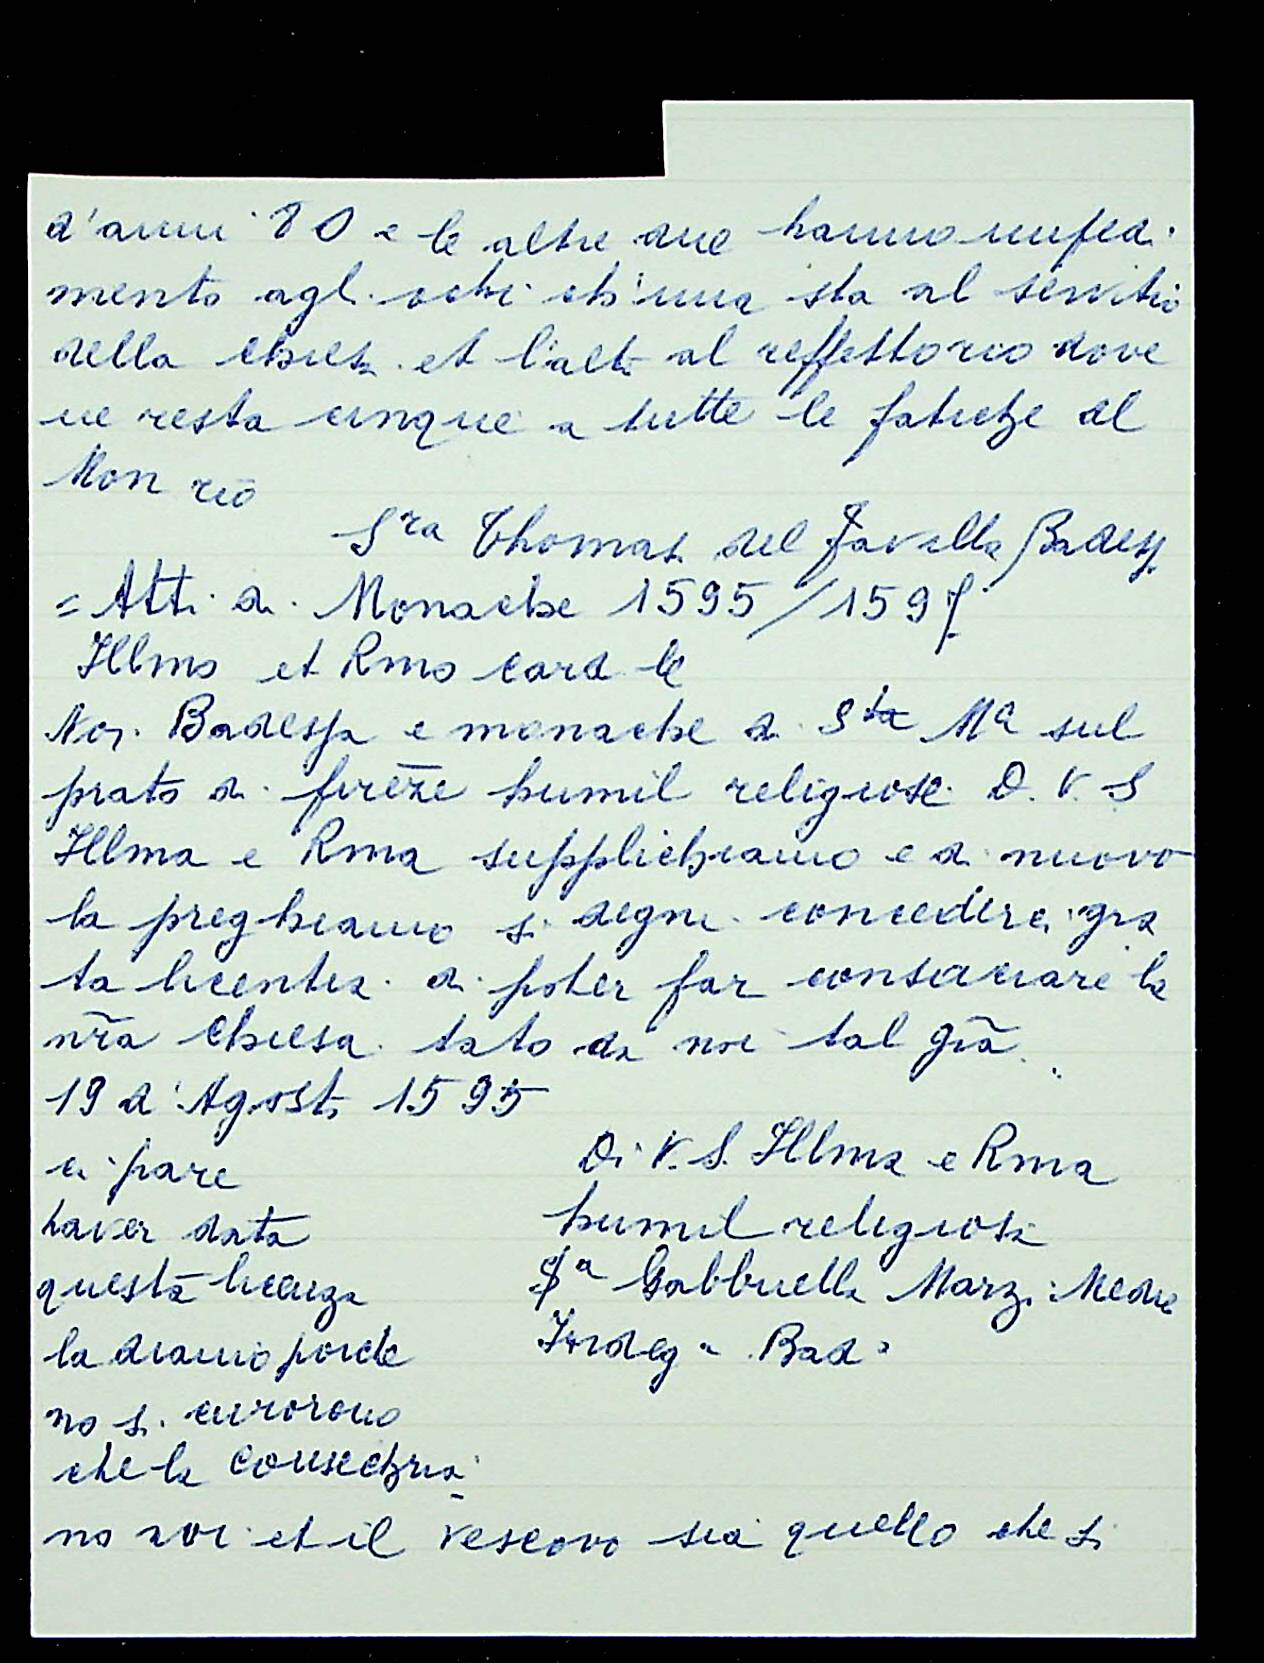 d'anni 80 e le altre due hanno impedi-
mento agl. ochi ch'una sta al servitio
della chiesa et l'alt. al reffettorio dove
ne resta cinque a tutte le fatiche del
Mon rio
Sra Thomas. del Badessa
= Atti di Monache 1595/1597
Illmo et Rmo card le
Noi Badessa e monache di Sta Ma sul
prato di fireze humil religiose D. V. S
Illma e Rma supplichiamo e di nuovo
la preghiamo si degni concederci gra
ta licentia di poter far consacrare la
nra Chiesa tato da noi tal gra.
19 d'Agosto 1595
ci pare
haver data
questa licenza
la diamo
no si curorono
che la consechria
no noi et il vescovo sia quello che si
Di V. S. Illma e Rma
humil religiosa
Sa Gabbriella Marzi Medic
Indeg a Bada